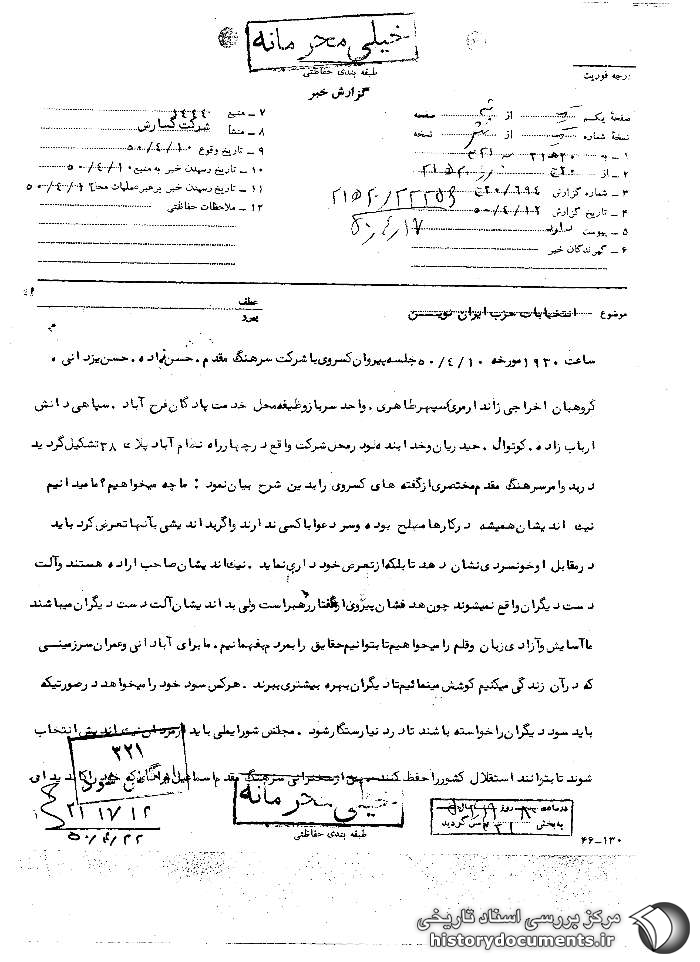 خیلی محرمانه
طبقه بندی حفاظتی
گزارش خبر
درجه فوریت
صفحه یکم از صفحه
نسخه شماره از نسخه
۱ - به
۲ - از
۳ - شماره گزارش ۲۰/۶۹۴ﻫ
۴ - تاریخ گزارش ۵۰/۴/۱۲
۵ - پیوست
۶ - گیرندگان خبر
۷ - منبع
۸ - منشأ
۹ - تاریخ وقوع ۵۰/۴/۱۰
۱۰ - تاریخ رسیدن خبر به منبع ۵۰/۴/۱۰
۱۱ - تاریخ رسیدن خبر برهبر عملیات ۵۰/۴/۱۲
۱۲ - ملاحظات حفاظتی
۵۰/۴/۱۷
عطف
موضوع انتخابات حزب ایران نوین
ساعت ۱۹۳۰ مورخه ۵۰/۴/۱۰ جلسه پیروان کسروی با شرکت سرهنگ مقدم . حسن زاده . حسن یزدانی .
گروهبان اخراجی ژاندارمری سپهر طاهری . واحد سرباز وظیفه محل خدمت پادگان فرح آباد . سپاهی دانش
ارباب زاده . کوتوال . حیدریان و خدابنده لو در محل شرکت واقع در چهارراه نظام آباد پلاک ۳۸ تشکیل گردید
در بدو امر سرهنگ مقدم مختصری از گفته های کسروی را بدین شرح بیان نمود : ما چه میخواهیم؟ ما میدانیم
نیک اندیشان همیشه در کارها مصلح بوده و سر دعوا با کسی ندارند و اگر بد اندیشی بآنها تعرض کرد باید
در مقابل او خونسردی نشان دهد تا بلکه از تعرض خودداری نماید . نیک اندیشان صاحب اراده هستند و آلت
دست دیگران واقع نمیشوند چون هدفشان پیروی از گفتار رهبر است ولی بد اندیشان آلت دست دیگران میباشند
ما آسایش و آزادی زبان و قلم را میخواهیم تا بتوانیم حقایق را بمردم بفهمانیم . ما برای آبادانی و عمران سرزمینی
که در آن زندگی میکنیم کوشش مینمائیم تا دیگران بهره بیشتری ببرند . هرکس سود خود را میخواهد در صورتیکه
باید سود دیگران را خواسته باشند تا در دنیا رستگار شود . مجلس شورایملی باید از مردان نیک اندیش انتخاب
شوند تا بتوانند استقلال کشور را حفظ کنند سپس از سخنرانی سرهنگ مقدم اسماعیل که خود را کاندیدای
۳۲۱
خیلی محرمانه
طبقه بندی حفاظتی
۲۱ ۱۷ ۱۲
۵۰/۴/۲۲
به بخش گردید
۴۶-۱۳۰
مرکز بررسی اسناد تاریخی
historydocuments.ir